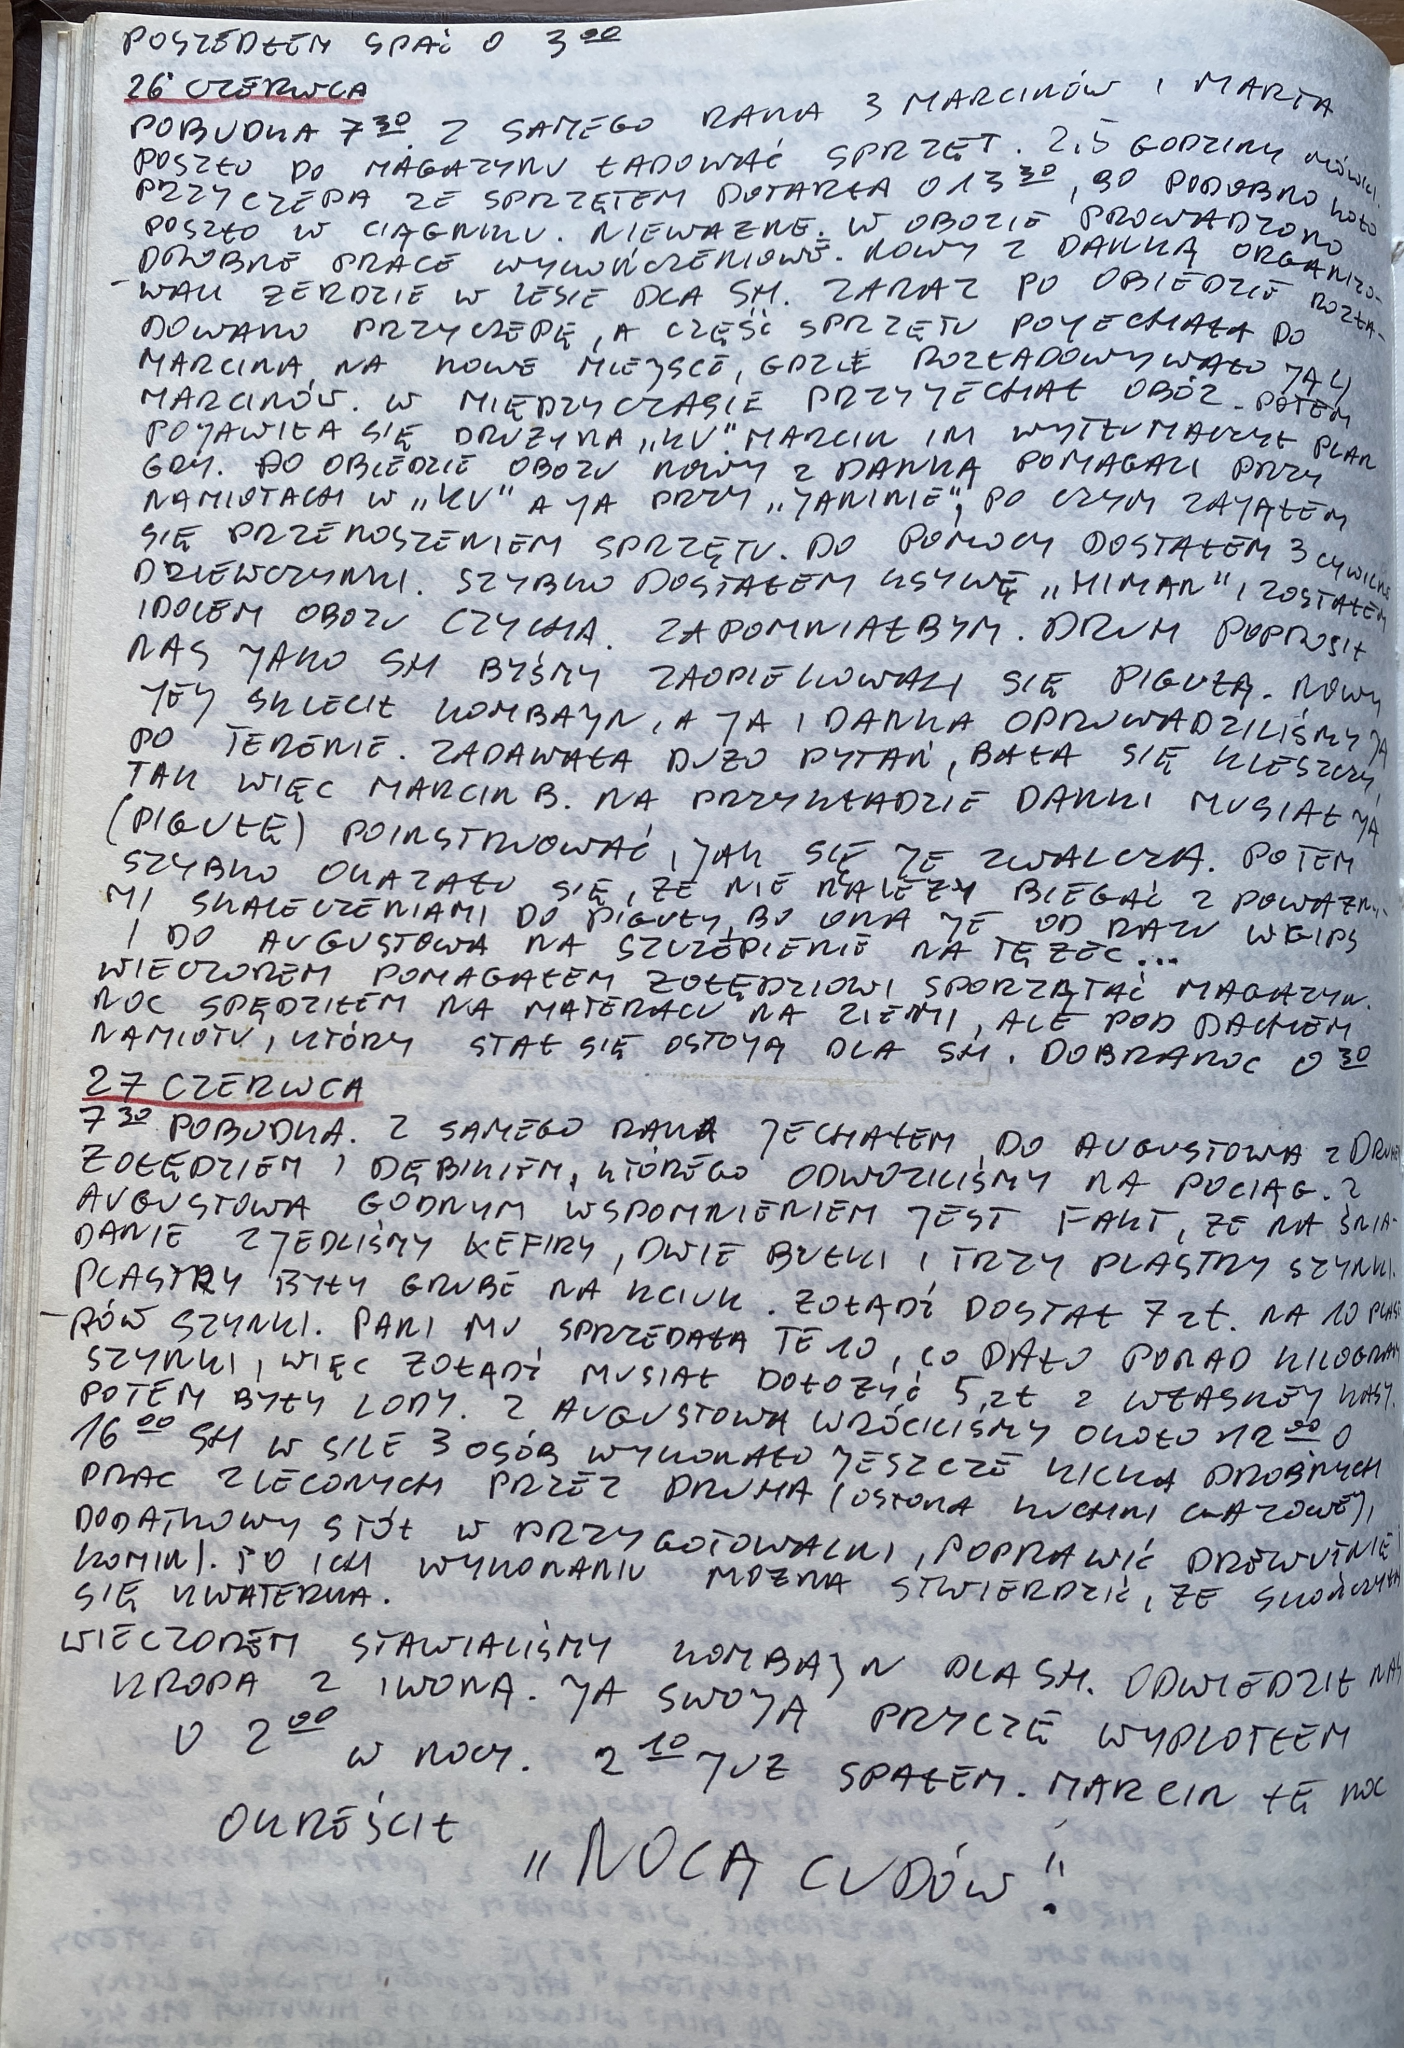 POSZEDŁEM SPAĆ O 3 00
26 CZERWCA
POBUDKA 7 30. Z SAMEGO RANA 3 MARCINÓW I MARTA
POSZŁO DO MAGAZYNU ŁADOWAĆ SPRZĘT. 2,5 GODZINY MÓWILI.
PRZYCZEPA ZE SPRZĘTEM DOTARŁA O 13 30, BO PODOBNO KOŁO
POSZŁO W CIĄGNIKU. NIEWAŻNE. W OBOZIE PROWADZONO
DROBNE PRACE WYKOŃCZENIOWE. NOWY Z DANKĄ ORGANIZO-
WALI ŻERDZIE W LESIE DLA SH. ZARAZ PO OBIEDZIE ROZŁA-
DOWANO PRZYCZEPĘ, A CZĘŚĆ SPRZĘTU POJECHAŁA DO
MARCINA NA NOWE MIEJSCE, GDZIE ROZŁADOWYWAŁO JĄ
MARCINÓW. W MIĘDZYCZASIE PRZYJECHAŁ OBÓZ. POTEM
POJAWIŁA SIĘ DRUŻYNA „KU". MARCIN IM WYTŁUMACZYŁ PLAN
GRY. PO OBIEDZIE OBOZU NOWY Z DANKĄ POMAGALI PRZY
NAMIOTACH W „KU" A JA PRZY „JANINIE", PO CZYM ZAJĄŁEM
SIĘ PRZENOSZENIEM SPRZĘTU. DO POMOCY DOSTAŁEM 3 CYWILNE
DZIEWCZYNKI. SZYBKO DOSTAŁEM KSYWĘ „HIMAN" I ZOSTAŁEM
IDOLEM OBOZU CZYCHA. ZAPOMNIAŁBYM. DRUH POPROSIŁ
NAS JAKO SH BYŚMY ZAOPIEKOWALI SIĘ PIGUŁĄ. NOWY
JEJ SKLECIŁ KOMBAJN, A JA I DANKA OPROWADZILIŚMY JĄ
PO TERENIE. ZADAWAŁA DUŻO PYTAŃ, BAŁA SIĘ KLESZCZY,
TAK WIĘC MARCIN B. NA PRZYKŁADZIE DANKI MUSIAŁ JĄ
(PIGUŁĘ) POINSTRUOWAĆ, JAK SIĘ JE ZWALCZA. POTEM
SZYBKO OKAZAŁO SIĘ, ŻE NIE NALEŻY BIEGAĆ Z POWAŻNY-
MI SKALECZENIAMI DO PIGUŁY, BO ONA JE OD RAZU W GIPS
I DO AUGUSTOWA NA SZCZEPIENIE NA TĘŻEC...
WIECZOREM POMAGAŁEM ŻOŁĘDZIOWI SPORZĄTAĆ MAGAZYN.
NOC SPĘDZIŁEM NA MATERACU NA ZIEMI, ALE POD DACHEM
NAMIOTU, KTÓRY STAŁ SIĘ OSTOJĄ DLA SH. DOBRANOC 0 30
27 CZERWCA
7 30 POBUDKA. Z SAMEGO RANA JECHAŁEM DO AUGUSTOWA Z DRUHEM
ŻOŁĘDZIEM I DĘBIKIEM, KTÓREGO ODWOZILIŚMY NA POCIĄG. Z
AUGUSTOWA GODNYM WSPOMNIENIEM JEST FAKT, ŻE NA ŚNIA-
DANIE ZJEDLIŚMY KEFIRY, DWIE BUŁKI I TRZY PLASTRY SZYNKI.
PLASTRY BYŁY GRUBE NA KCIUK. ŻOŁĄDŹ DOSTAŁ 7 ZŁ. NA 10 PLAST-
-RÓW SZYNKI. PANI MU SPRZEDAŁA TE 10, CO DAŁO PONAD KILOGRAM
SZYNKI, WIĘC ŻOŁĄDŹ MUSIAŁ DOŁOŻYĆ 5 ZŁ Z WŁASNEJ KASY.
POTEM BYŁY LODY. Z AUGUSTOWA WRÓCILIŚMY OKOŁO 12 00 O
16 00 SH W SILE 3 OSÓB WYKONAŁO JESZCZE KILKA DROBNYCH
PRAC ZLECONYCH PRZEZ DRUHA (OSŁONA KUCHNI GAZOWEJ,
DODATKOWY STÓŁ W PRZYGOTOWALNI, POPRAWIĆ DREWUTNIĘ I
KOMIN). PO ICH WYKONANIU MOŻNA STWIERDZIĆ, ŻE SKOŃCZYŁA
SIĘ KWATERKA.
WIECZOREM STAWIALIŚMY KOMBAJN DLA SH. ODWIEDZIŁ NAS
KROPA Z IWONĄ. JA SWOJĄ PRYCZĘ WYPLOTŁEM
O 2 00 W NOCY. 2 10 JUŻ SPAŁEM. MARCIN TĘ NOC
OKREŚLIŁ
„NOCĄ CUDÓW"!